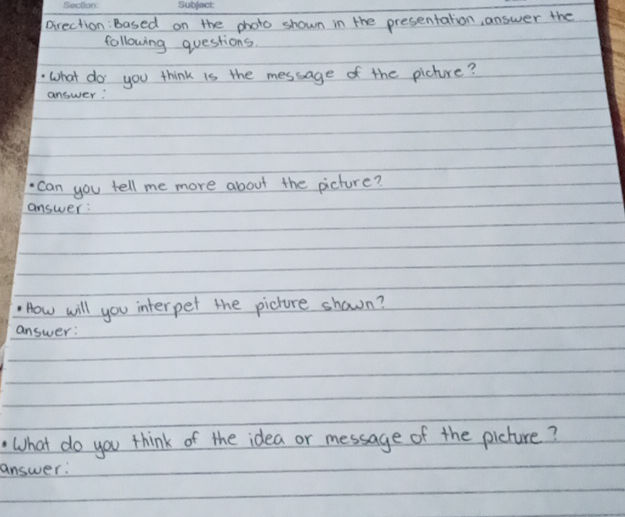 Section: Subject:
Direction: Based on the photo shown in the presentation, answer the
following questions.
• What do you think is the message of the picture?
answer:
• Can you tell me more about the picture?
answer:
• How will you interpet the picture shown?
answer:
• What do you think of the idea or message of the picture?
answer: